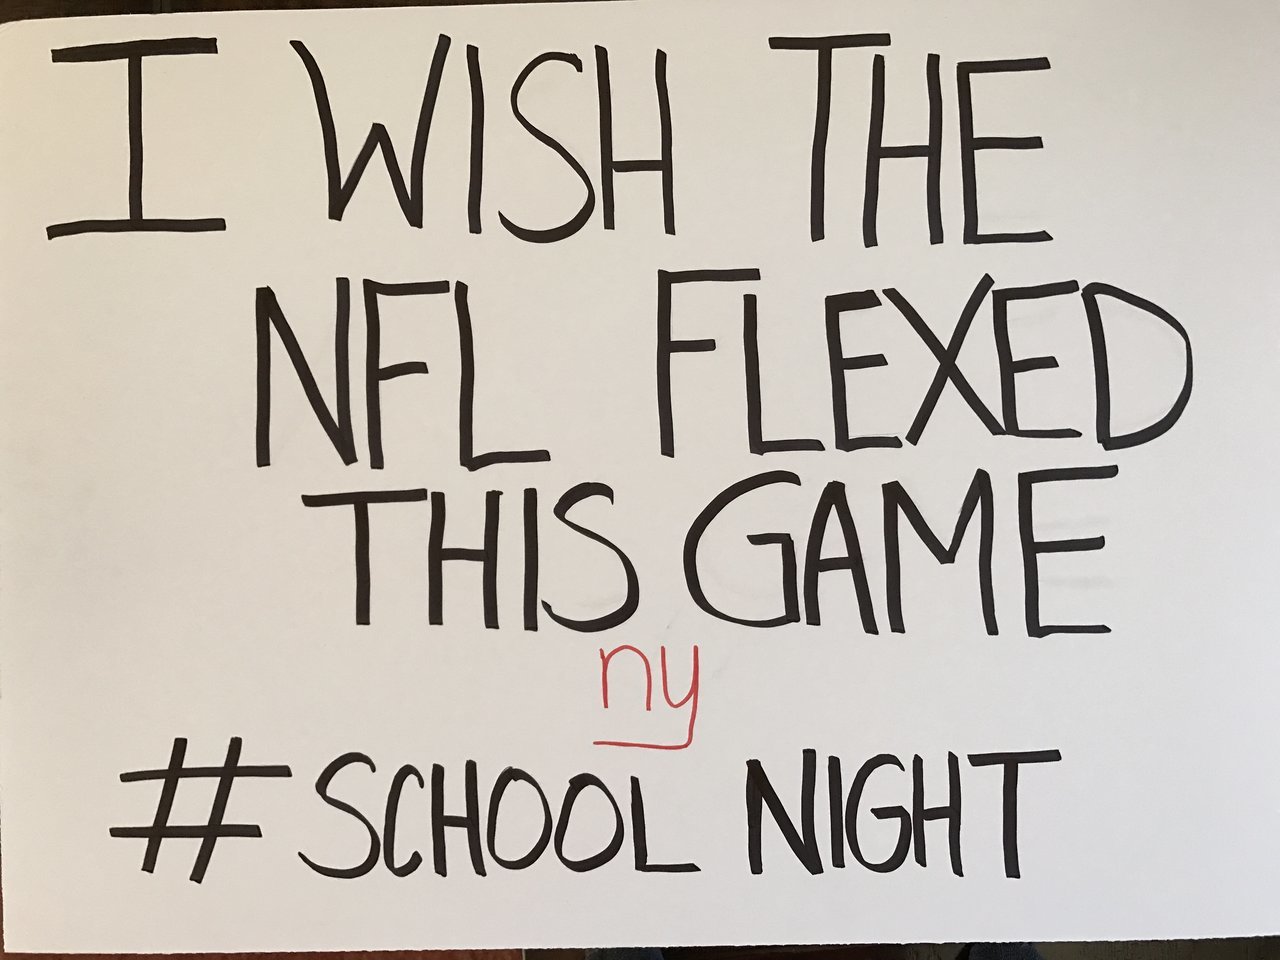 I WISH THE
NFL FLEXED
THIS GAME
ny
# SCHOOL NIGHT